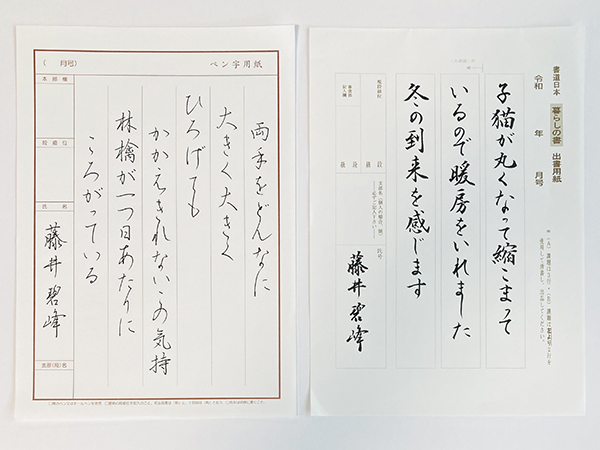 ペン字用紙
（　月号）
両手をどんなに
大きく大きく
ひろげても
かかえきれないこの気持
林檎が一つ日あたりに
ころがっている
本部欄
段級位
氏名
藤井碧峰
支部(局)名
書道日本 暮らしの書 出書用紙
令和 年 月号
子猫が丸くなって縮こまって
いるので暖房をいれました
冬の到来を感じます
藤井碧峰